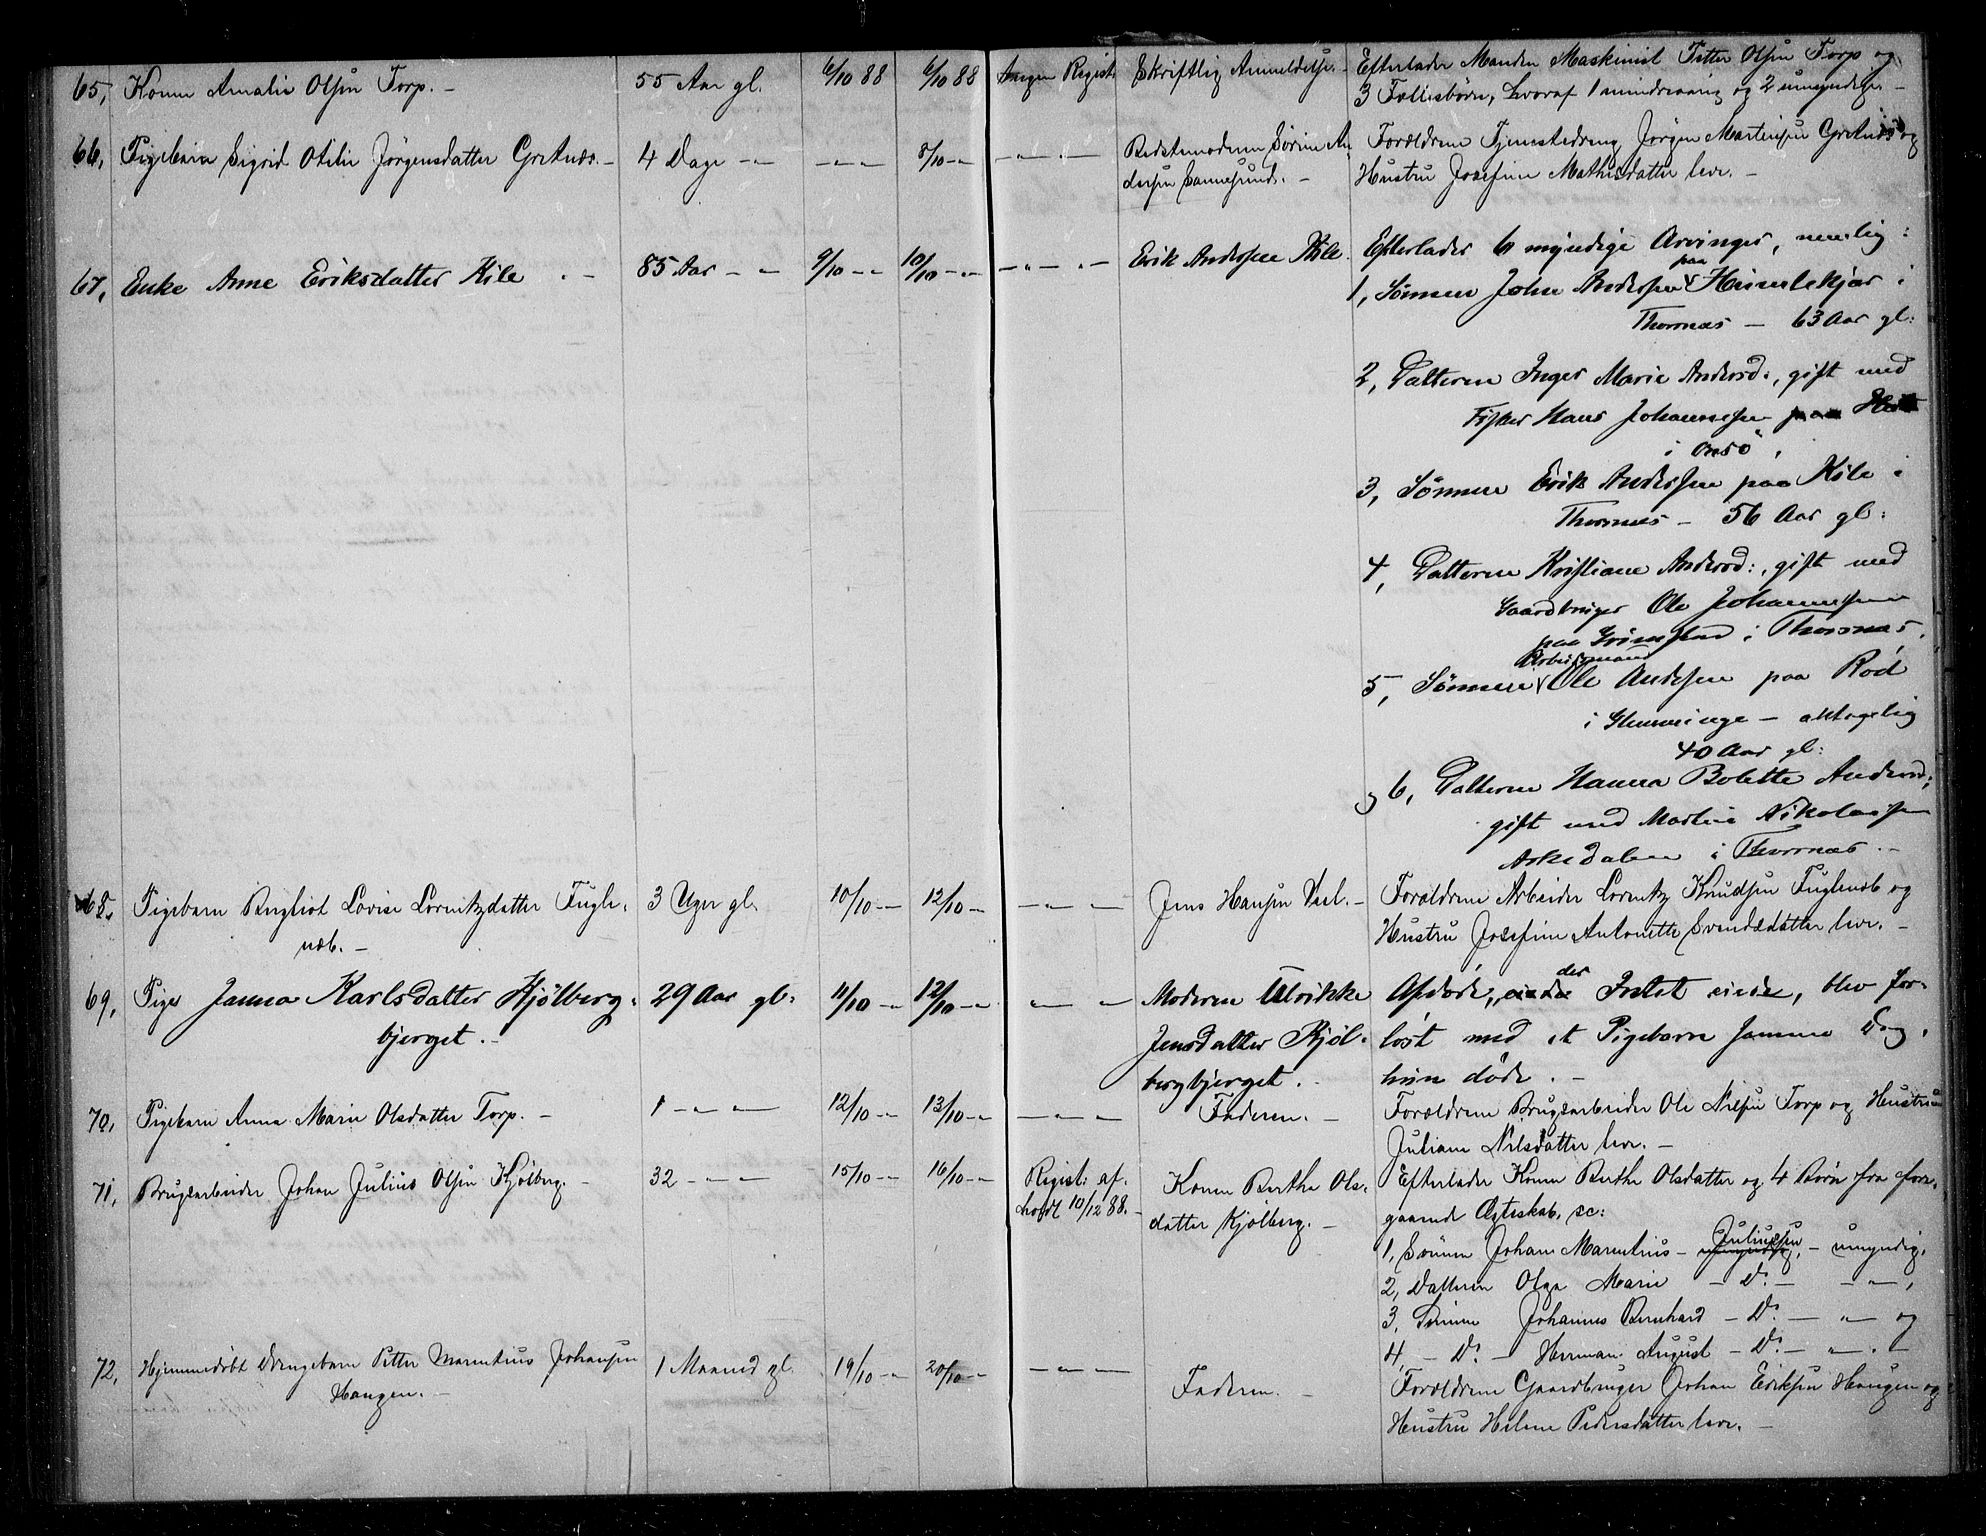 65, Konen Amalie Olsen Torp. – 55 Aar gl. 6/10 88 6/10 88 Ingen Regist. Skriftlig Anmeldelse. – Efterlader Manden Maskinist Petter Olsen Torp og
3 Fællesbørn, hvoraf 1 mindreaarig og 2 umyndige. –
66, Pigebarn Sigrid Otilie Jörgensdatter Gretnæs. – 4 Dage – " – " – 8/10 – " – " – Bedstemoderen Sörine An-
dersen Sannesund. –
Forældrene Tjenestedreng Jörgen Martinsen Gretnæs og
Hustru Josefine Mathisdatter leve. –
67, Enke Anne Eriksdatter Kile . – 85 Aar – " 9/10 – " 10/10 – " – " – " – Erik Andersen Kile. Efterlader 6 myndige Arvinger, nemlig:
1, Sønnen John Andersen paa Humlekjær i
Thorsnæs – 63 Aar gl:
2, Datteren Inger Marie Andersd:, gift med
Fisker Hans Johannesen
i Onsö,
3, Sønnen Erik Andersen paa Kile i
Thorsnæs – 56 Aar gl:
4, Datteren Kristiane Andersd:, gift med
Gaardbruger Ole Johannesen
paa Grimstad i Thorsnæs,
Arbeidsmand
5, Sønnen Ole Andersen paa Röd
i Glemminge – antagelig
40 Aar gl:
og 6, Datteren Hanna Bolette Andersd:,
gift med Martin Nikolaisen
Askedalen i Thorsnæs. –
68. Pigebarn Borghild Lovise Lorentzdatter Fugle-
næb. –
3 Uger gl. 10/10 – " 12/10 – " – " – Jens Hansen – Forældrene Arbeider Lorentz Knudsen Fuglenæb og
Hustru Josefine Antonette Svendsdatter leve. –
69, Pige Janna Karlsdatter Kjölberg-
bjerget. –
29 Aar gl: 11/10 – " 12/10 – " – " – Moderen Ulrikke
Jensdatter Kjöl-
bergbjerget. –
Afdøde, der Intet eiede, blev for-
löst med et Pigebarn samme Dag,
hun døde. –
70, Pigebarn Anna Marie Olsdatter Torp. – 1 – " – 12/10 – " 13/10 – " – " – Faderen. – Forældrene Brugsarbeider Ole Nilsen Torp og Hustru
Juliane Nilsdatter leve. –
71, Brugsarbeider Johan Julius Olsen Kjölberg. – 32 – " – 15/10 – " 16/10 – " Regist: af-
holdt 10/12 88. –
Konen Berthe Ols-
datter Kjölberg. –
Efterlader Konen Berthe Olsdatter og 4 Börn fra fore-
gaaende Ægteskab, sc:
1, Sönnen Johan Marentius – Juliussen – umyndig,
2, Datteren Olga Marie – Do – – " – ,
3, Sönnen Johannes Bernhard – Do – – " – og
4, – Do – Herman August – Do – – " – . –
72, Hjemmedöbt Drengebarn Petter Marentius Johansen
Haugen. –
1 Maaned gl. 19/10 – " 20/10 – " – " – Faderen. – Forældrene Gaardbruger Johan Eriksen Haugen og
Hustru Helene Pedersdatter leve. –